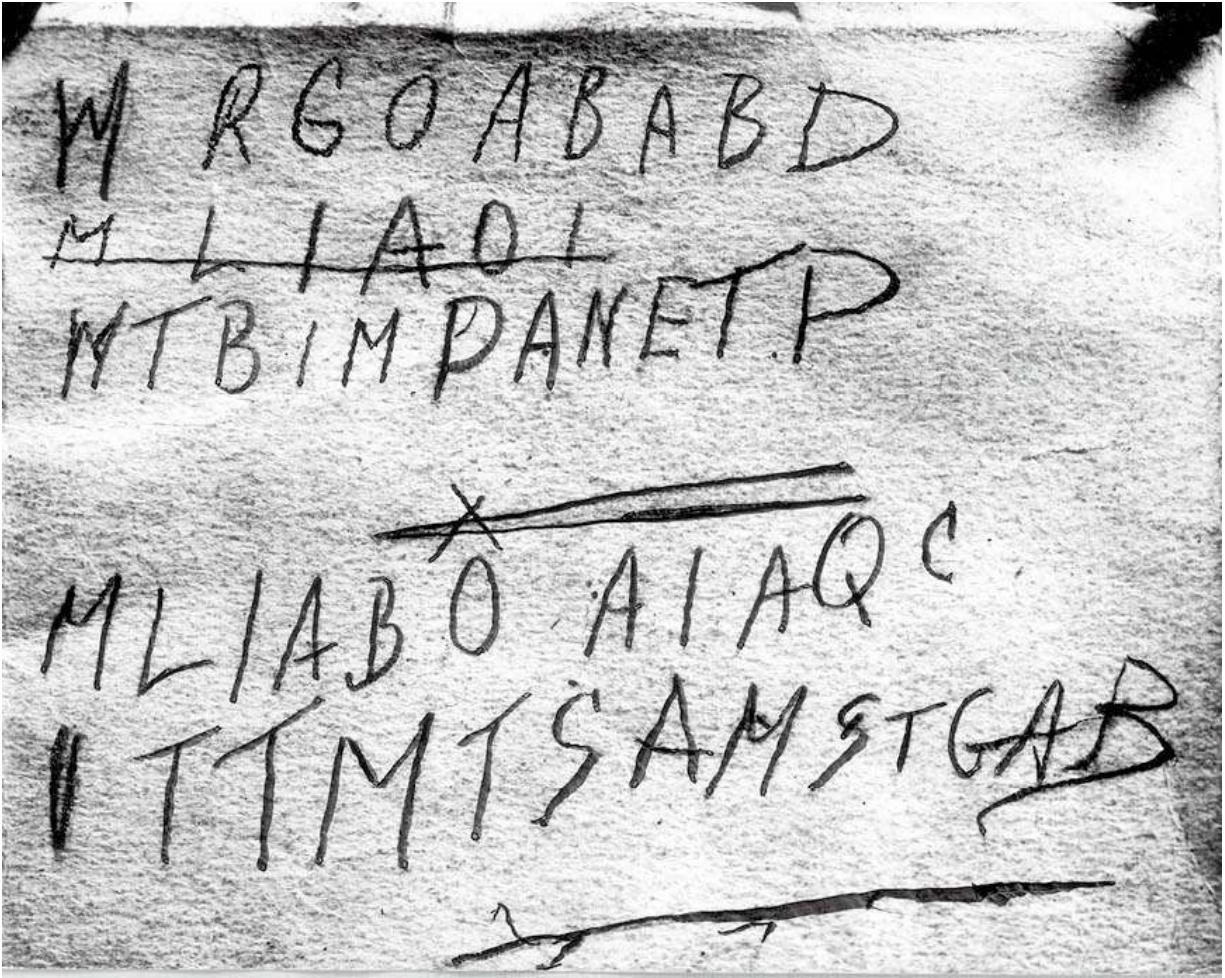 W RGOABABD
M LIAOI
WTBIMPANETP
MLIABO AIAQC
ITTMTSAMSTGAB